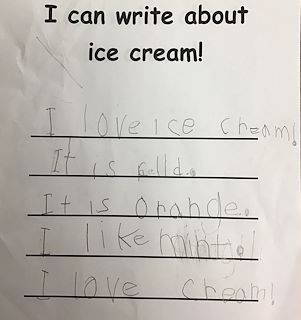 I can write about
ice cream!
I love ice cream!
It is
It is orange.
I like minty!
I love cream!